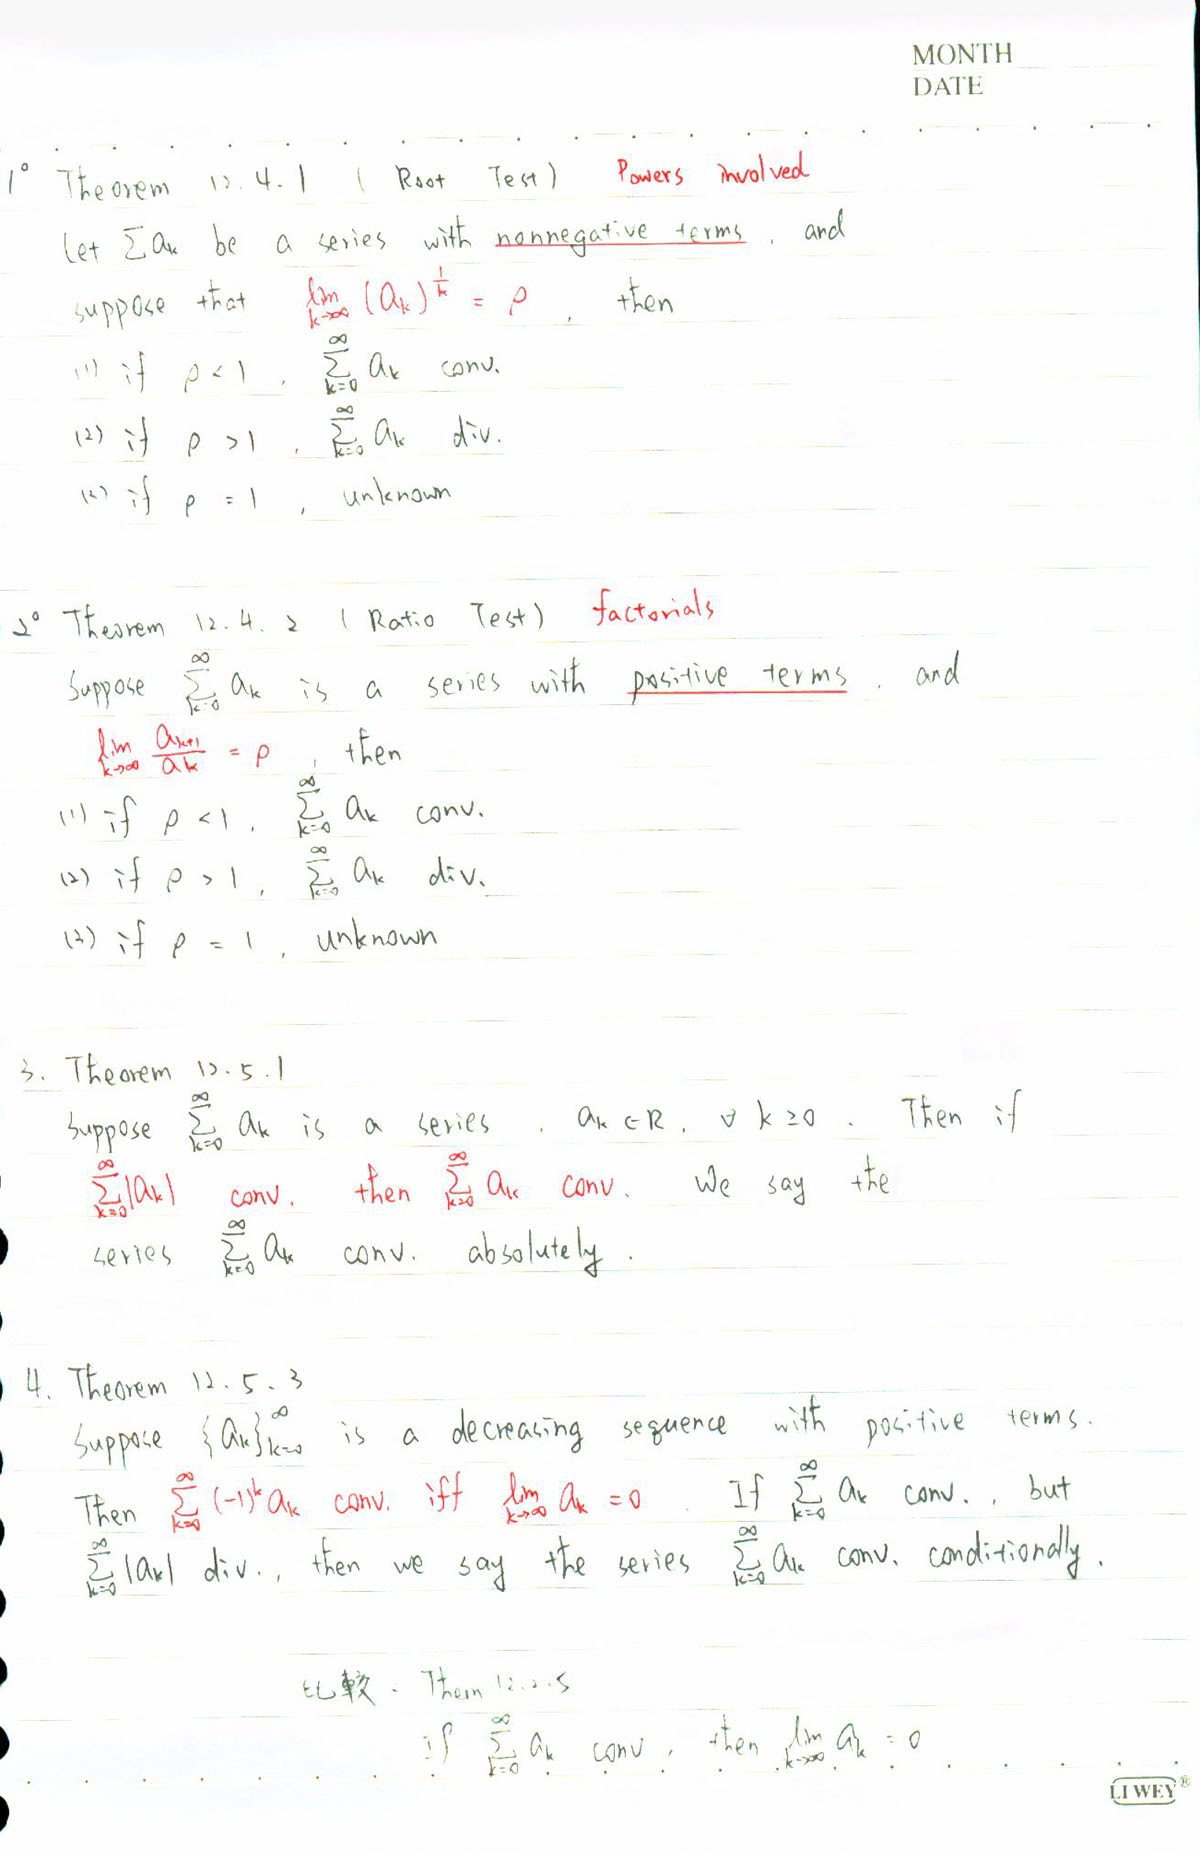 MONTH
DATE
1° Theorem 12.4.1 (Root Test) Powers involved
Let Σaₖ be a series with nonnegative terms, and
suppose that lim_{k→∞} (aₖ)^{1/k} = ρ, then
(1) if ρ < 1, Σ_{k=0}^{∞} aₖ conv.
(2) if ρ > 1, Σ_{k=0}^{∞} aₖ div.
(3) if ρ = 1, unknown
2° Theorem 12.4.2 (Ratio Test) factorials
Suppose Σ_{k=0}^{∞} aₖ is a series with positive terms, and
lim_{k→∞} a_{k+1}/aₖ = ρ, then
(1) if ρ < 1, Σ_{k=0}^{∞} aₖ conv.
(2) if ρ > 1, Σ_{k=0}^{∞} aₖ div.
(3) if ρ = 1, unknown
3. Theorem 12.5.1
Suppose Σ_{k=0}^{∞} aₖ is a series, aₖ ∈ R, ∀ k ≥ 0. Then if
Σ_{k=0}^{∞} |aₖ| conv. then Σ_{k=0}^{∞} aₖ conv. We say the
series Σ_{k=0}^{∞} aₖ conv. absolutely.
4. Theorem 12.5.3
Suppose {aₖ}_{k=0}^{∞} is a decreasing sequence with positive terms.
Then Σ_{k=0}^{∞} (-1)^k aₖ conv. iff lim_{k→∞} aₖ = 0. If Σ_{k=0}^{∞} aₖ conv., but
Σ_{k=0}^{∞} |aₖ| div., then we say the series Σ_{k=0}^{∞} aₖ conv. conditionally.
比較. Them 12.2.5
if Σ_{k=0}^{∞} aₖ conv, then lim_{k→∞} aₖ = 0
LI WEY®